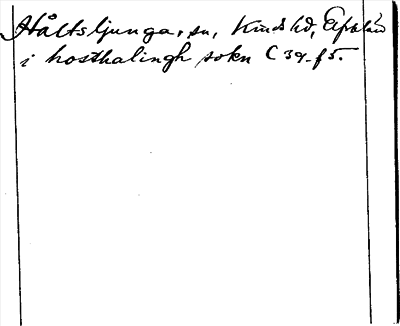 Håltsljunga, sn, Kinds hd, Älfsb län
i hosthalingh sokn C 39. f 5.